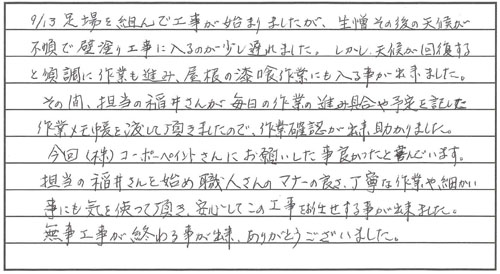 9/13 足場を組んで工事が始まりましたが、生憎その後の天候が
不順で壁塗り工事に入るのが少し遅れました。しかし、天候が回復する
と順調に作業も進み、屋根の漆喰作業にも入る事が出来ました。
その間、担当の稲井さんが毎日の作業の進み具合や予定を記した
作業メモ帳を渡して頂きましたので、作業確認が出来、助かりました。
今回(株)コーポーペイントさんにお願いした事良かったと喜んでいます。
担当の稲井さんを始め職人さんのマナーの良さ、丁寧な作業や、細かい
事にも気を使って頂き、安心してこの工事をお任せする事が出来ました。
無事工事が終わる事が出来、ありがとうございました。